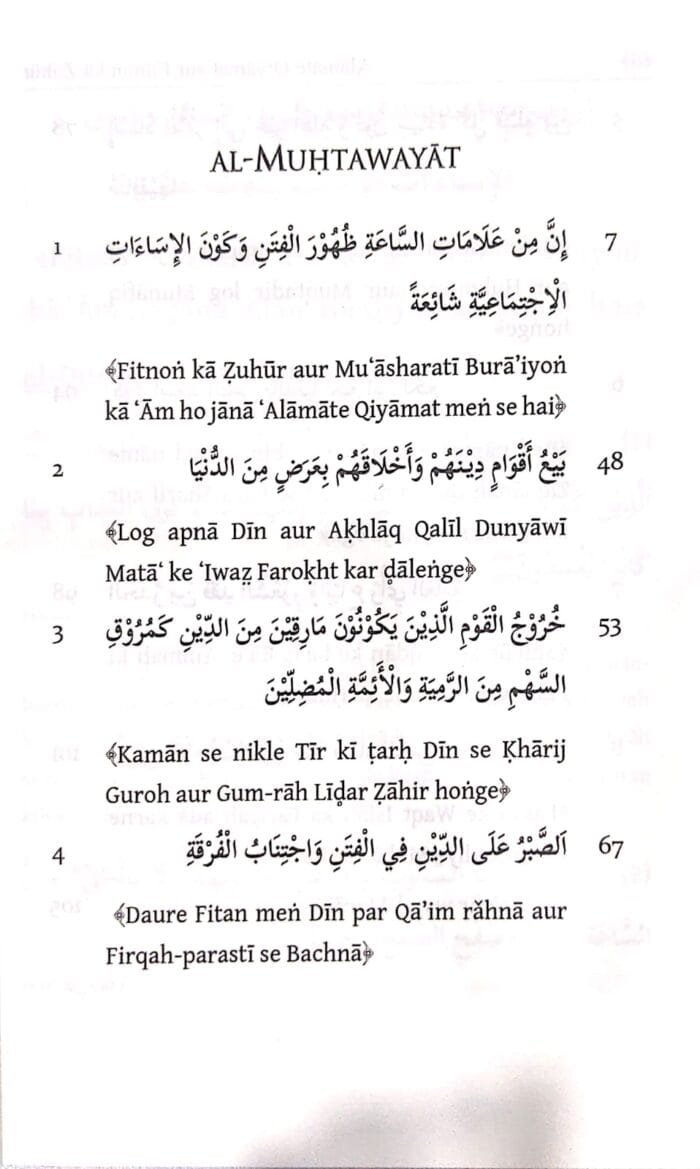 AL-MUḤTAWAYĀT
1 إِنَّ مِنْ عَلَامَاتِ السَّاعَةِ ظُهُوْرَ الْفِتَنِ وَكَوْنَ الْإِسَاءَاتِ 7
الْاِجْتِمَاعِيَّةِ شَائِعَةً
﴾Fitnoṅ kā Ẓuhūr aur Mu‘āsharatī Burā’iyoṅ
kā ‘Ām ho jānā ‘Alāmāte Qiyāmat meṅ se hai﴿
2 بَيْعُ أَقْوَامٍ دِيْنَهُمْ وَأَخْلَاقَهُمْ بِعَرَضٍ مِنَ الدُّنْيَا 48
﴾Log apnā Dīn aur Aḳhlāq Qalīl Dunyāwī
Matā‘ ke ‘Iwaẓ Faroḳht kar ḍāleṅge﴿
3 خُرُوْجُ الْقَوْمِ الَّذِيْنَ يَكُوْنُوْنَ مَارِقِيْنَ مِنَ الدِّيْنِ كَمُرُوْقِ 53
السَّهْمِ مِنَ الرَّمِيَةِ وَالْأَئِمَّةِ الْمُضِلِّيْنَ
﴾Kamān se nikle Tīr kī ṭarḥ Dīn se Ḳhārij
Guroh aur Gum-rāh Līḍar Ẓāhir hoṅge﴿
4 اَلصَّبْرُ عَلَى الدِّيْنِ فِي الْفِتَنِ وَاجْتِنَابُ الْفُرْقَةِ 67
﴾Daure Fitan meṅ Dīn par Qā’im răhnā aur
Firqah-parastī se Bachnā﴿